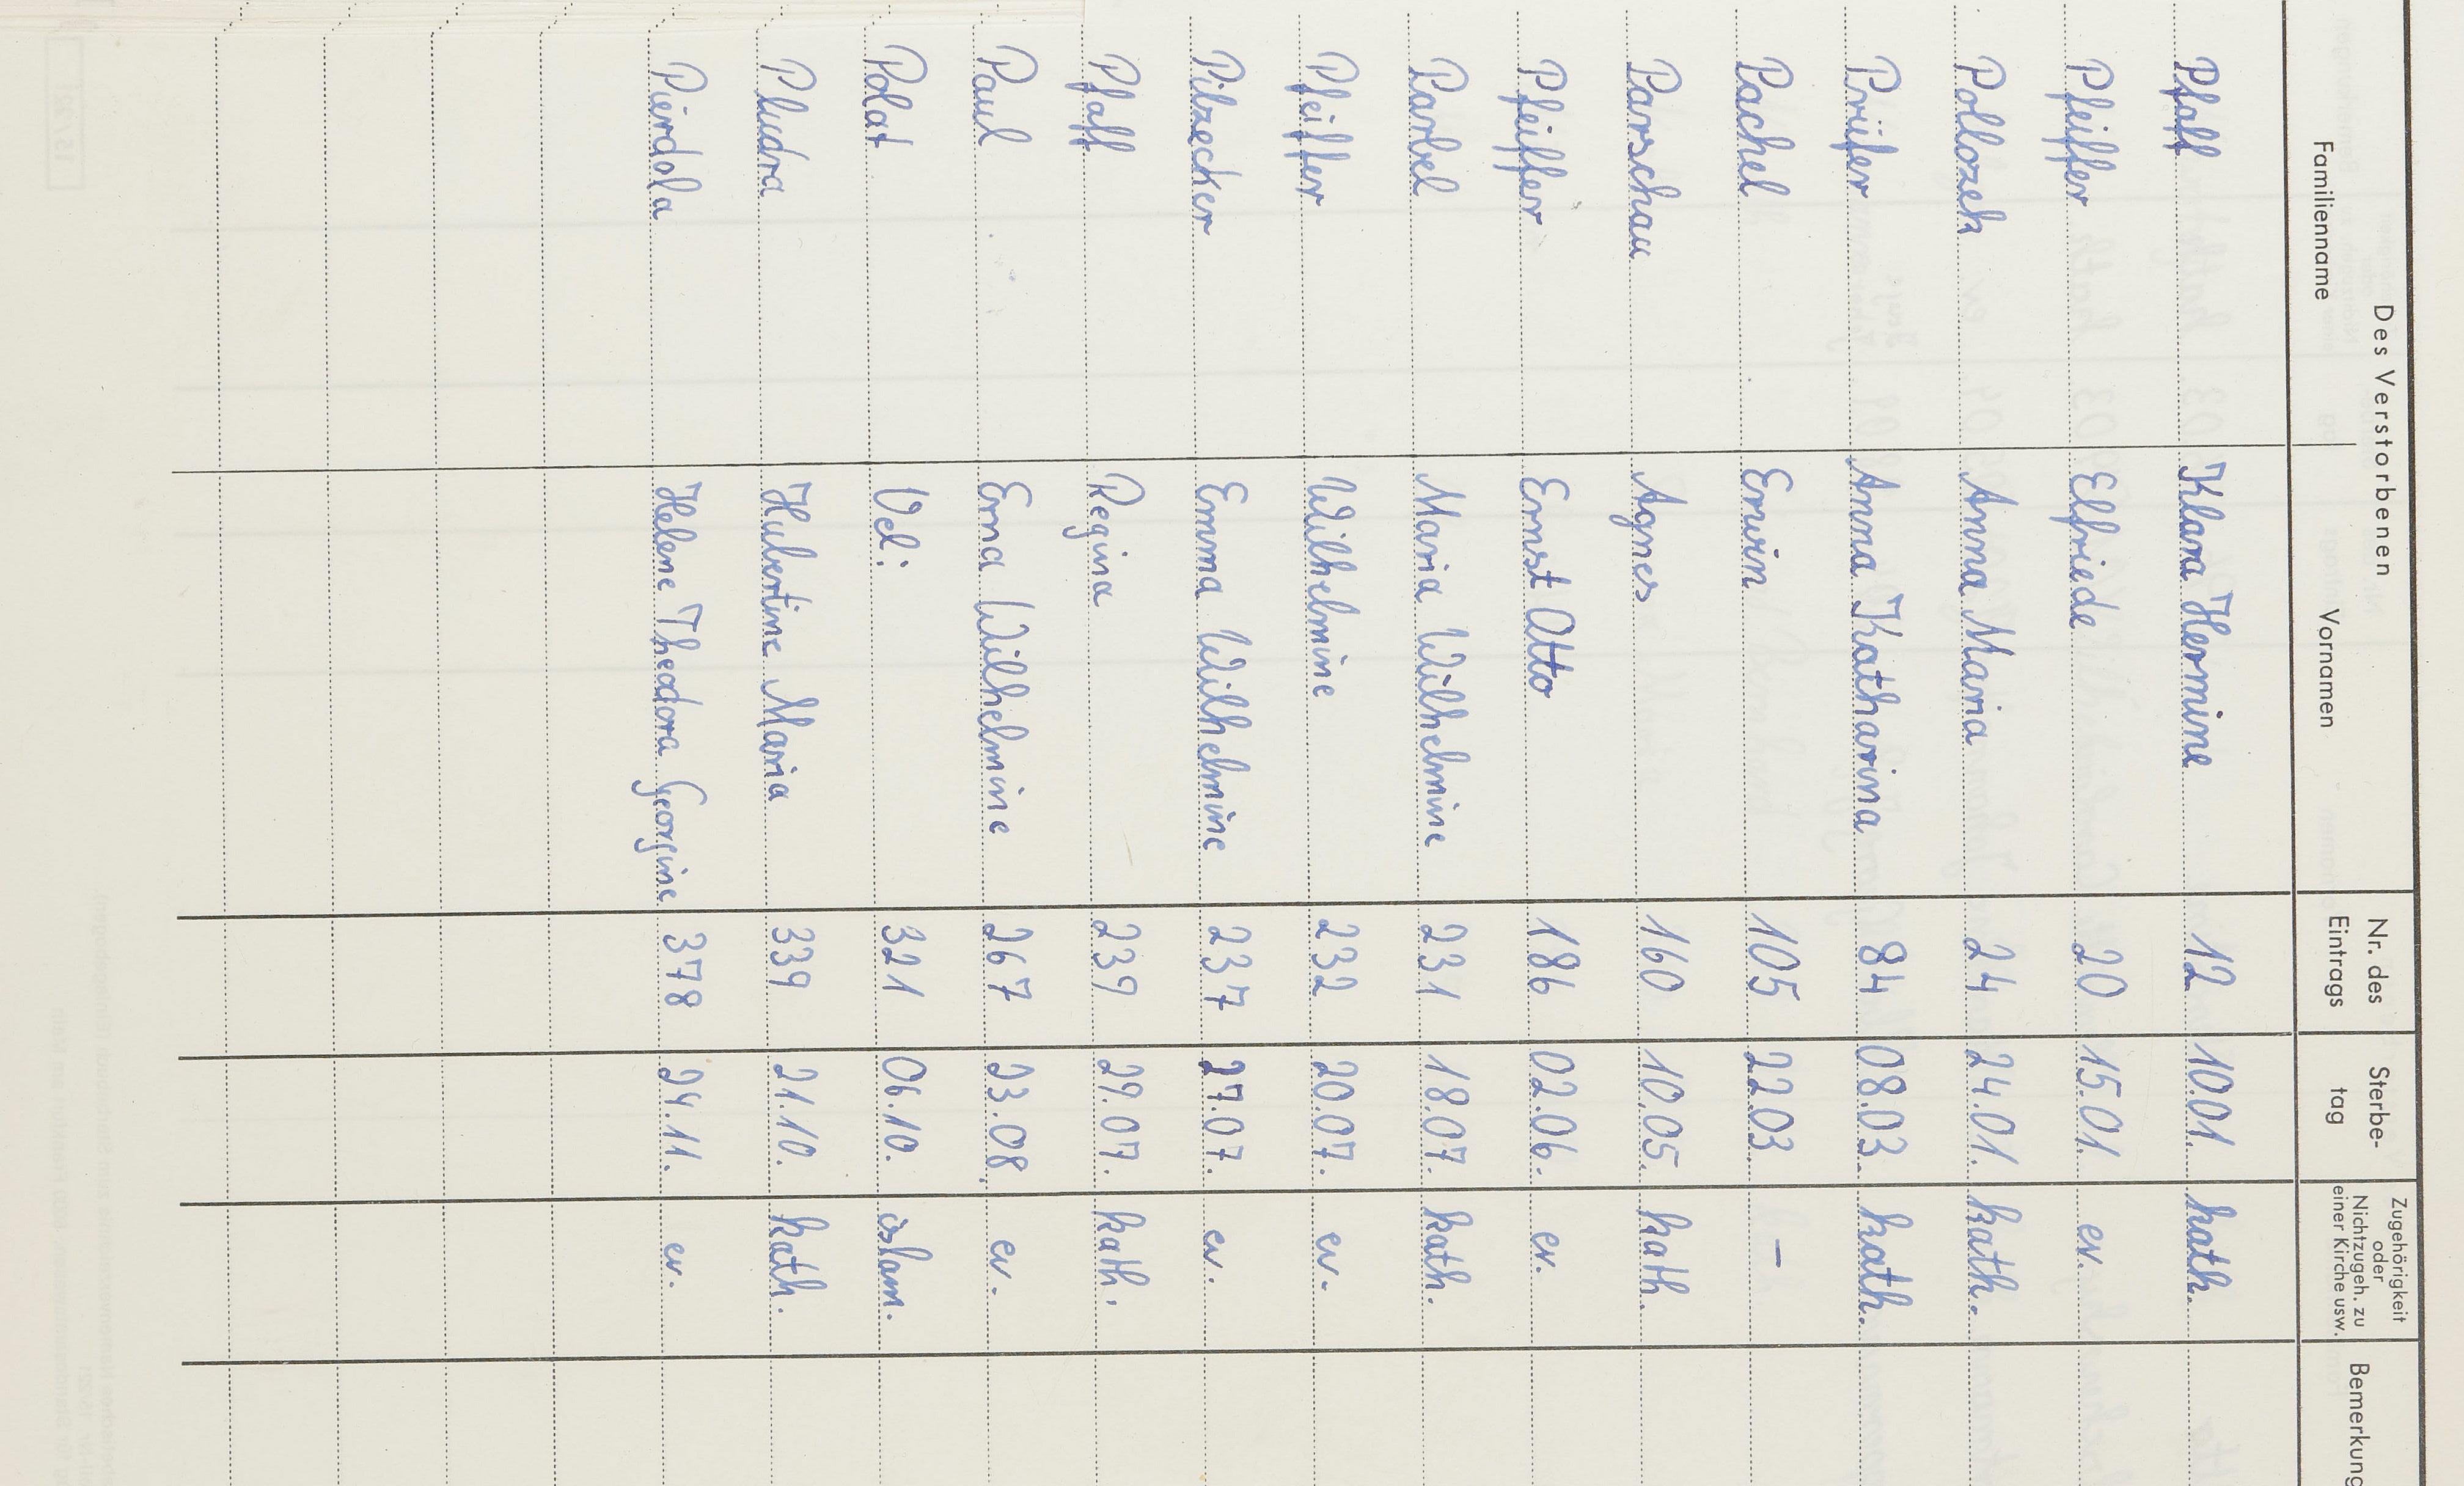 Des Verstorbenen
Familienname Vornamen Nr. des Eintrags Sterbe-tag Zugehörigkeit oder Nichtzugeh. zu einer Kirche usw. Bemerkung
Pfaff Klara Hermine 12 10.01. kath.
Pfeiffer Elfriede 20 15.01. ev.
Pollozek Anna Maria 24 24.01. kath.
Prüfer Anna Katharina 84 08.03. kath.
Pachel Erwin 105 22.03. –
Parschau Agnes 160 10.05. kath.
Pfeiffer Ernst Otto 186 02.06. ev.
Parbel Maria Wilhelmine 231 18.07. kath.
Pfeiffer Wilhelmine 232 20.07. ev.
Pilzecker Emma Wilhelmine 237 27.07. ev.
Pfaff Regina 239 29.07. kath.
Paul Erna Wilhelmine 267 23.08. ev.
Polat Veli 321 06.10. islam.
Pludra Hubertine Maria 339 21.10. kath.
Pierdola Helene Theodora Georgine 378 24.11. ev.